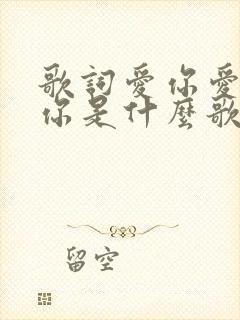 歌詞愛你愛
你是什麼歌
留空